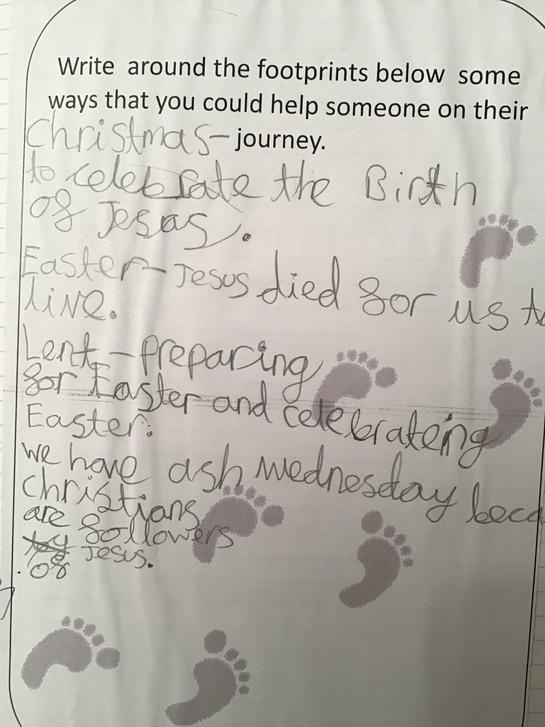 Write around the footprints below some
ways that you could help someone on their
journey.
Christmas-
to celebrate the Birth
of Jesas.
Easter-Jesus died for us to
live.
Lent-preparing
for Easter and celebrateing
Easter.
we have ash wednesday beca
christians
are followers
of Jesus.